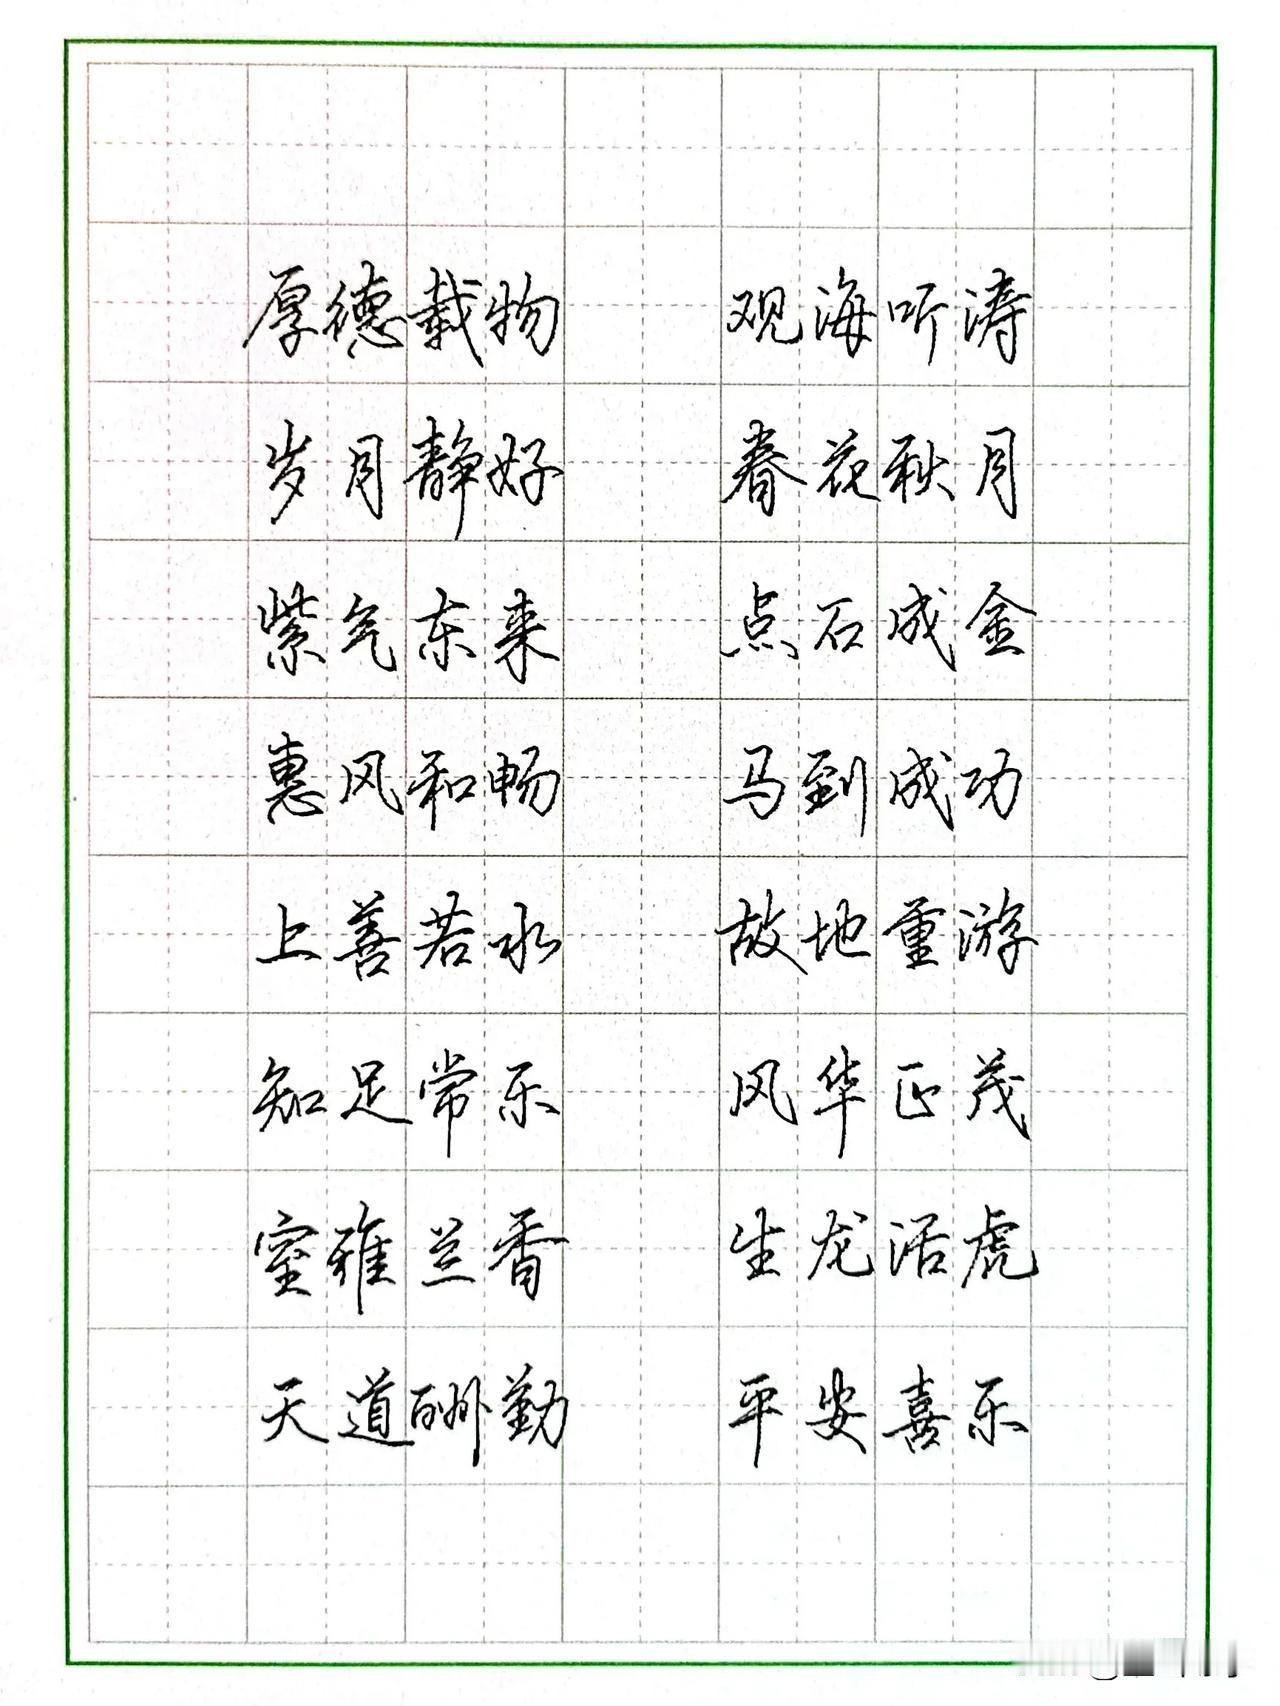 厚德载物 观海听涛
岁月静好 春花秋月
紫气东来 点石成金
惠风和畅 马到成功
上善若水 故地重游
知足常乐 风华正茂
室雅兰香 生龙活虎
天道酬勤 平安喜乐